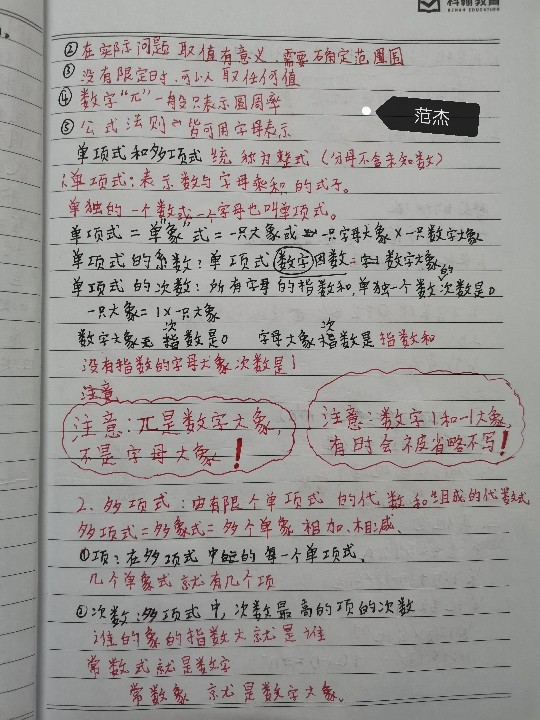 科翰教育
②在实际问题取值有意义.需要确定范围
③没有限定时,可以取任何值
④数字"π"一般只表示圆周率
⑤公式法则 皆可用字母表示
范杰
单项式和多项式统称为整式(分母不含未知数)
1.单项式:表示数与字母乘积的式子。
单独的一个数或一个字母也叫单项式。
单项式=单"象"式=一只大象或一只字母大象×一只数字大象
单项式的系数:单项式数字因数=数字大象
单项式的次数:所有字母的指数和,单独一个数的次数是0
一只大象=1×一只大象
数字大象 次指数是0 字母大象次指数是指数和
没有指数的字母大象次数是1
注意
注意:π是数字大象,
不是字母大象!
注意:数字1和-1大象,
有时会被省略不写!
2.多项式:由有限个单项式的代数和组成的代数式
多项式=多象式=多个单象相加.相减.
①项:在多项式中的每一个单项式.
几个单象式就有几个项
②次数:多项式中,次数最高的项的次数
谁的象的指数大就是谁
常数式就是数字
常数象 就是数字大象.